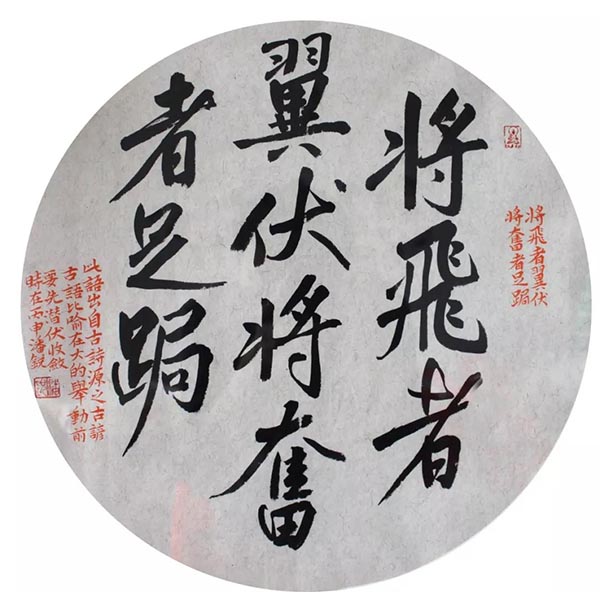 将飛者翼伏
将奮者足跼
将飛者
翼伏将奮
者足跼
此語出自古詩源之古諺
古語比喻在大的舉動前
要先潜伏收敛
時在丙申潘銳